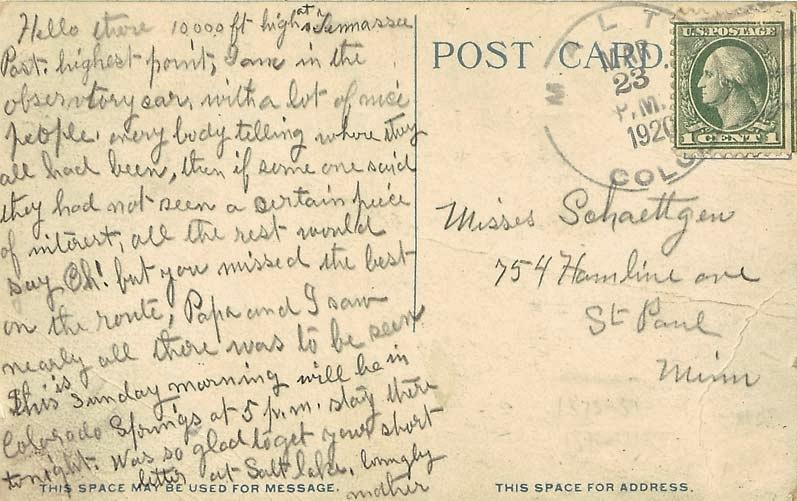 Hello there 10000 ft high at Tennassee
Past. highest point, I am in the
observatory car, with a lot of nice
people. every body telling where they
all had been, then if some one said
they had not seen a certain piece
of interest, all the rest would
say Oh! but you missed the best
on the route, Papa and I saw
nearly all there was to be seen
This is Sunday morning will be in
Colorado Springs at 5 p.m. stay there
tonight. Was so glad to get your short
letter at Salt lake. lovingly
mother
THIS SPACE MAY BE USED FOR MESSAGE.
POST CARD.
M LT
23
P.M.
1920
COLO
U.S. POSTAGE
1 CENT 1
Misses Schaettgen
754 Hamline ave
St Paul
Minn
THIS SPACE FOR ADDRESS.